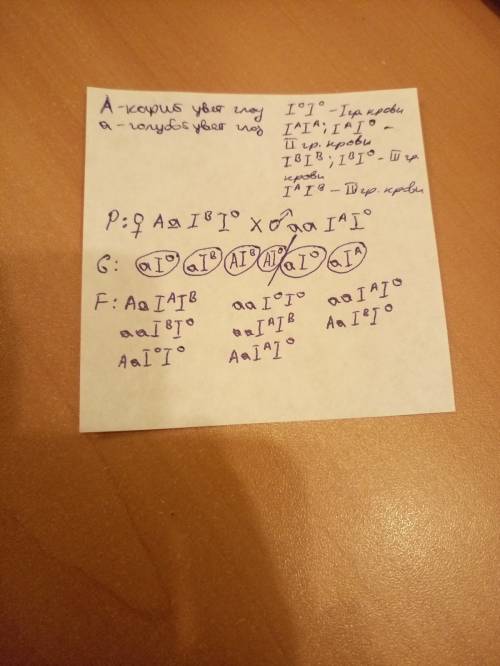 А - карий цвет глаз
а - голубой цвет глаз
I⁰I⁰ - I гр. крови
IᴬIᴬ; IᴬI⁰ -
II гр. крови
IᴮIᴮ; IᴮI⁰ - III гр.
крови
IᴬIᴮ - IV гр. крови
P: ♀ Aa IᴮI⁰ X ♂ aa IᴬI⁰
G: aI⁰ aIᴮ AIᴮ AI⁰ / aI⁰ aIᴬ
F: AaIᴬIᴮ aaI⁰I⁰ aaIᴬI⁰
aaIᴮI⁰ aaIᴬIᴮ AaIᴮI⁰
AaI⁰I⁰ AaIᴬI⁰